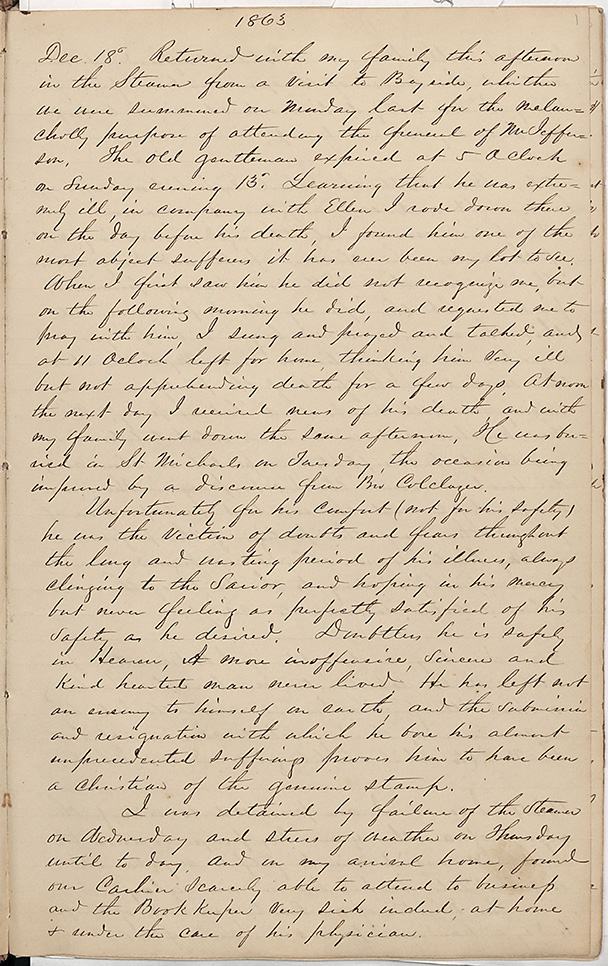 1863
Dec. 18. Returned with my family this afternoon
in the Steamer from a visit to Bayside, whither
we were summoned on Monday last for the melan=
cholly purpose of attending the funeral of Mr Jeffer=
son. The old gentleman expired at 5 OClock
on Sunday evening 13. Learning that he was extre=
mely ill, in company with Ellen I rode down there
on the day before his death, I found him one of the
most abject sufferers it has ever been my lot to see.
When I first saw him he did not recognize me, but
on the following morning he did, and requested me to
pray with him, I sung and prayed and talked, and
at 11 Oclock left for home, thinking him very ill
but not apprehending death for a few days. At noon
the next day I received news of his death, and with
my family went down the same afternoon, He was bu=
ried in St Michaels on Tuesday, the occasion being
improved by a discourse from Bro Colclazer.
Unfortunately for his comfort (not for his safety)
he was the victim of doubts and fears throughout
the long and wasting period of his illness, always
clinging to the Savior, and hoping in his mercy
but never feeling as perfectly satisfied of his
safety as he desired. Doubtless he is safely
in Heaven, A more inoffensive, sincere and
kind hearted man never lived. He has left not
an enemy to himself on earth, and the submission
and resignation with which he bore his almost
unprecedented sufferings proves him to have been
a christian of the genuine stamp.
I was detained by failure of the Steamer
on Wednesday and stress of weather on Thursday
until to day, and on my arrival home, found
our Cashier scarcely able to attend to business
and the Bookkeeper very sick indeed, at home
& under the care of his physician.